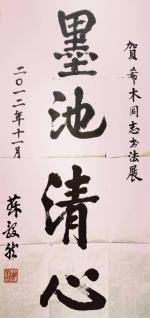 贺希木同志书法展
墨池清心
二〇一二年十一月